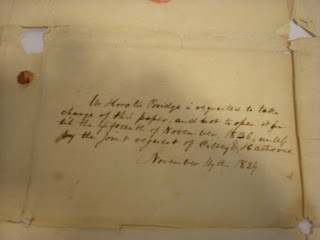 Mr Horatio Bridge is requested to take
charge of this paper, and not to open it un
til the fifteenth of November, 1836, unless
by the joint request of Cilley & Hathorne
November 14th. 1824